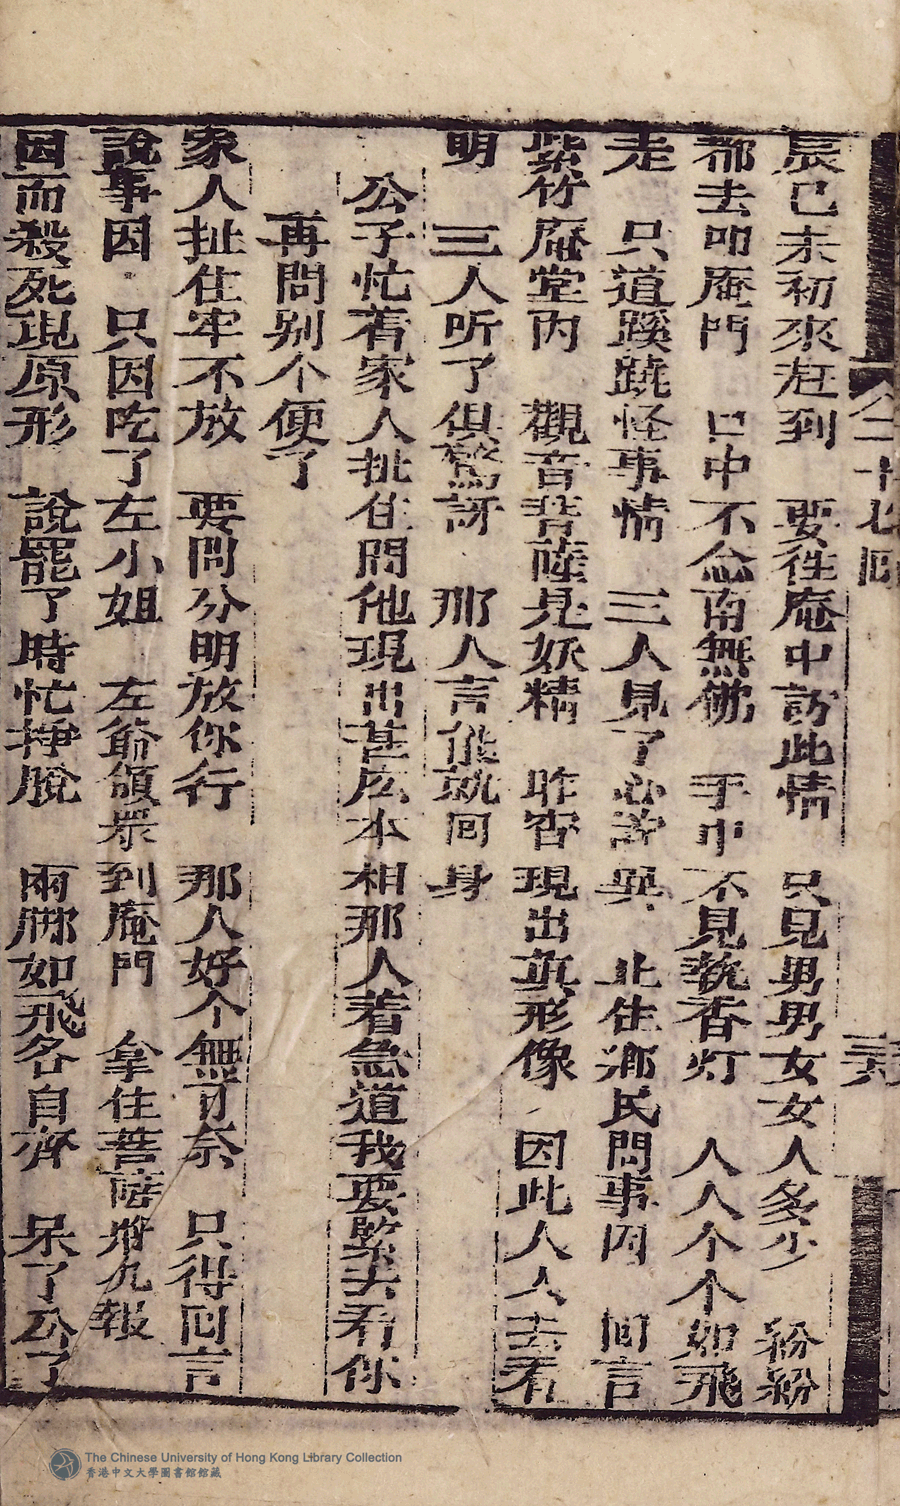 全二十七回
辰巳未初來赶到　要徃庵中訪此情　只見男男女女人多少　紛紛
都去叩庵門　口中不念南無佛　手中不見執香灯　人人个个如飛
走　只道蹊蹺怪事情　三人見了心詫異　止住鄉民問事因　回言
紫竹庵堂內　觀音菩薩是妖精　昨宵現出真形像　因此人人去看
明　三人听了俱驚訝　那人言能就回身
公子忙着家人扯住問他現出甚庅本相那人着急道我要緊去看你
再問别个便了
家人扯住牢不放　要問分明放你行　那人好个無可奈　只得回言
說事因　只因吃了左小姐　左爺領眾到庵門　拿住菩薩將九報
因而殺死現原形　說罷了時忙挣脫　兩脚如飛名自奔　呆了公了
The Chinese University of Hong Kong Library Collection
香港中文大學圖書館館藏